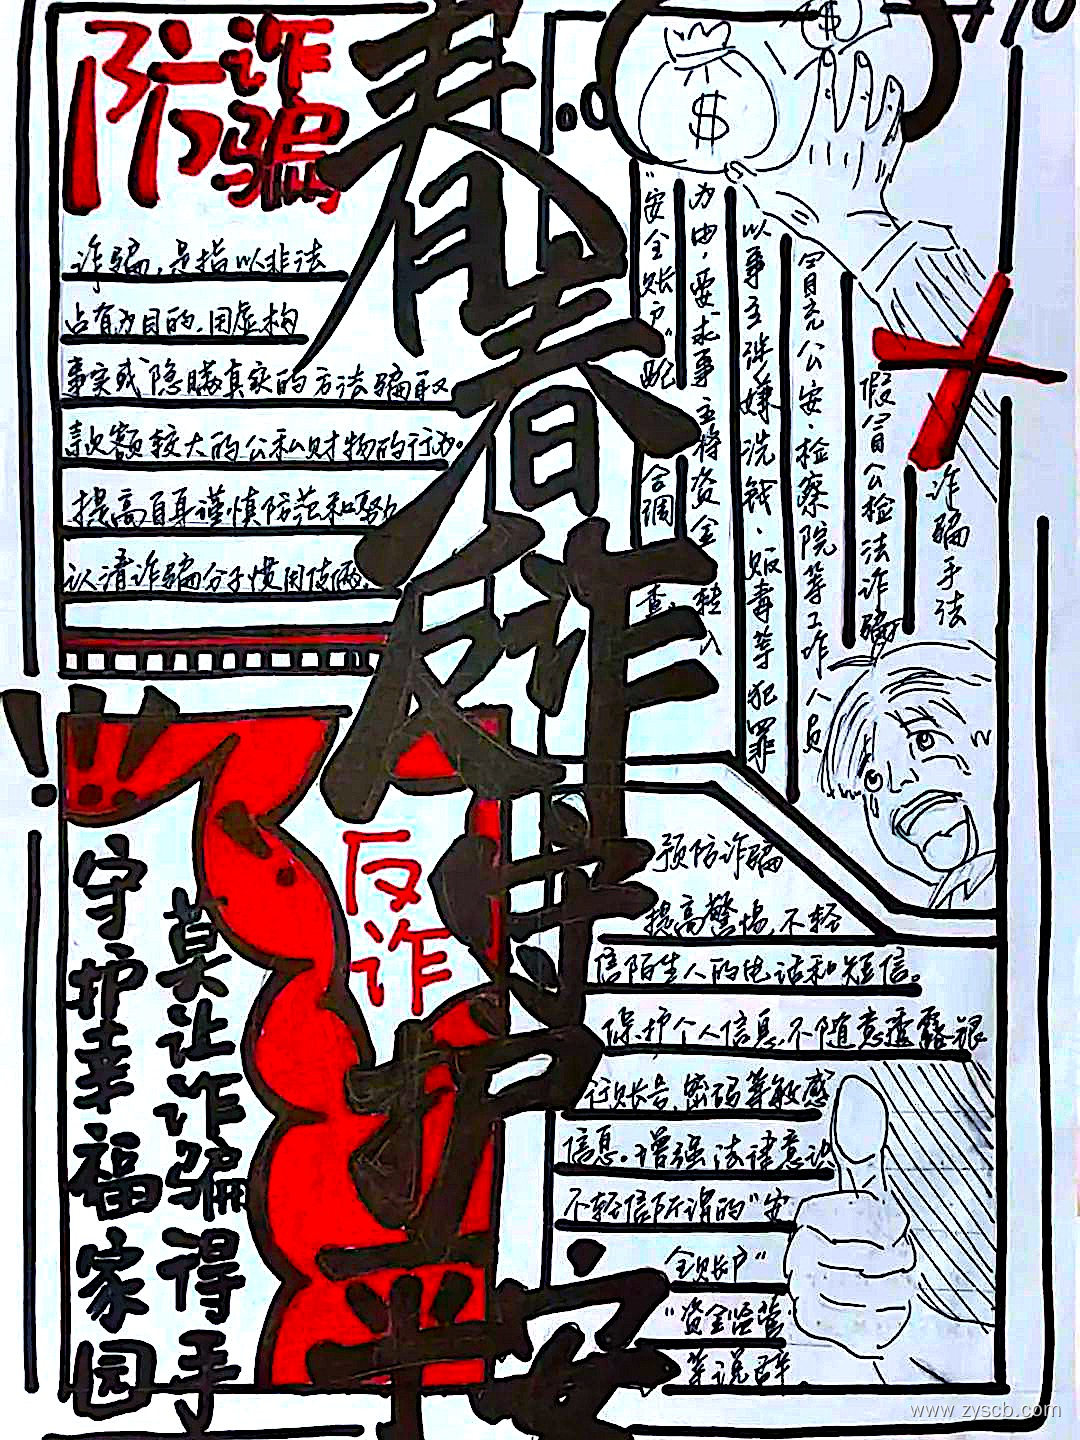 防诈骗
诈骗，是指以非法
占有为目的，用虚构
事实或隐瞒真实的方法骗取
款额较大的公私财物的行为。
提高自身谨慎防范和努力
认清诈骗分子惯用伎俩。
青春
反诈
守护
平安
诈骗手法
假冒公检法诈骗
冒充公安、检察院等工作人员
以事主涉嫌洗钱、贩毒等犯罪
为由，要求事主将资金转入
"安全账户"配合调查。
反诈
莫让诈骗得手
守护幸福家园
预防诈骗
提高警惕，不轻
信陌生人的电话和短信。
保护个人信息，不随意透露银
行账号、密码等敏感
信息。增强法律意识
不轻信所谓的"安
全账户"
"资金监管
等说辞
www.zyscb.com